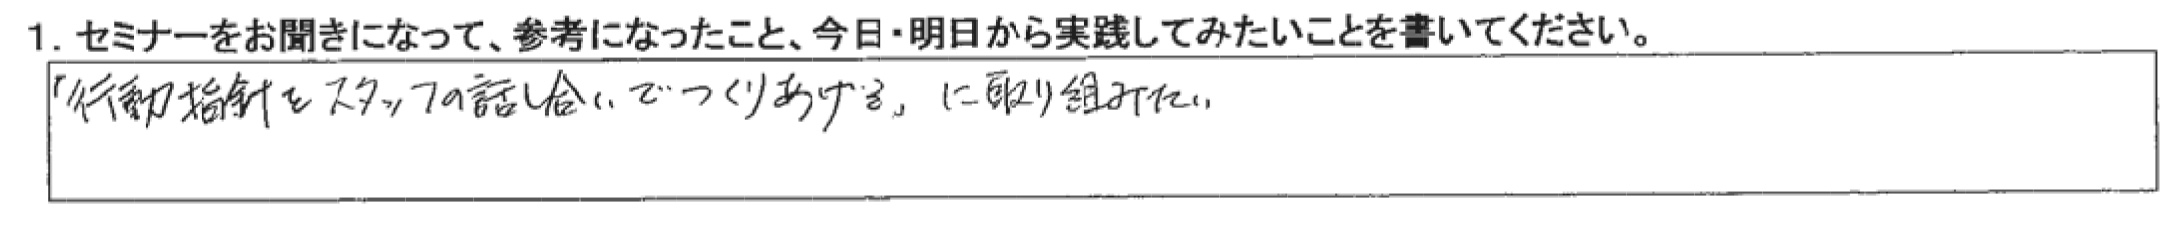 1. セミナーをお聞きになって、参考になったこと、今日・明日から実践してみたいことを書いてください。
「行動指針をスタッフの話し合いでつくりあげる」に取り組みたい